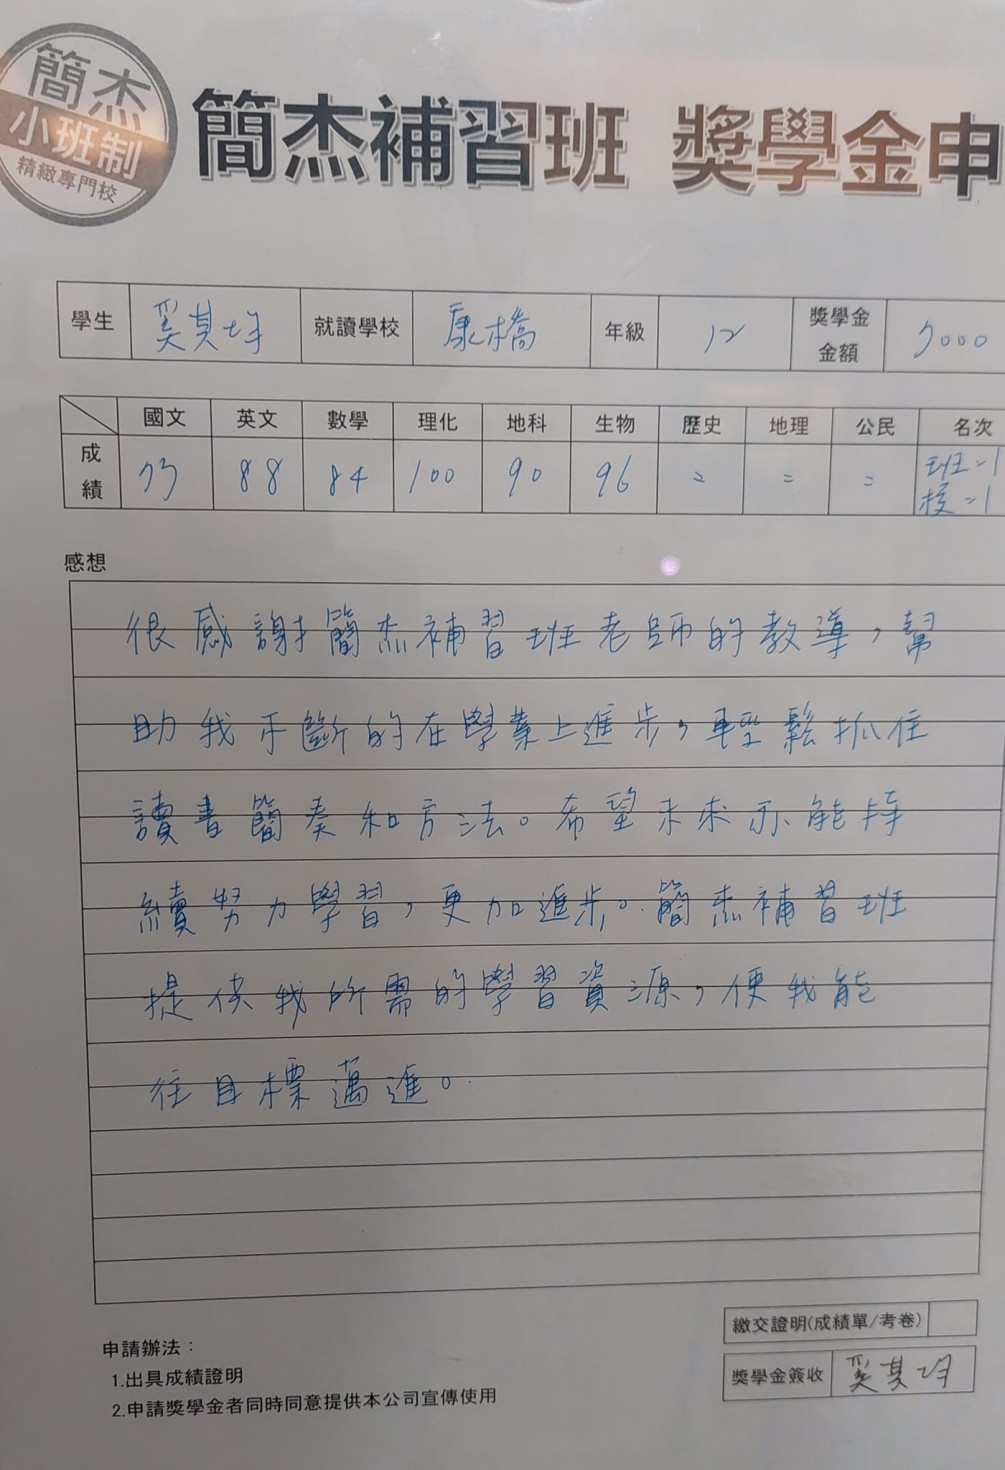 簡杰
小班制
精緻專門校
簡杰補習班 獎學金申
學生 奚其均 就讀學校 康橋 年級 12 獎學金金額 7000
國文 英文 數學 理化 地科 生物 歷史 地理 公民 名次
成績 73 88 84 100 90 96 = = = 班=1 校=1
感想
很感謝簡杰補習班老師的教導,幫
助我不斷的在學業上進步,輕鬆抓住
讀書簡奏和方法。希望未來亦能持
續努力學習,更加進步。簡杰補習班
提供我所需的學習資源,使我能
往目標邁進。
繳交證明(成績單/考卷)
獎學金簽收 奚其均
申請辦法:
1.出具成績證明
2.申請獎學金者同時同意提供本公司宣傳使用